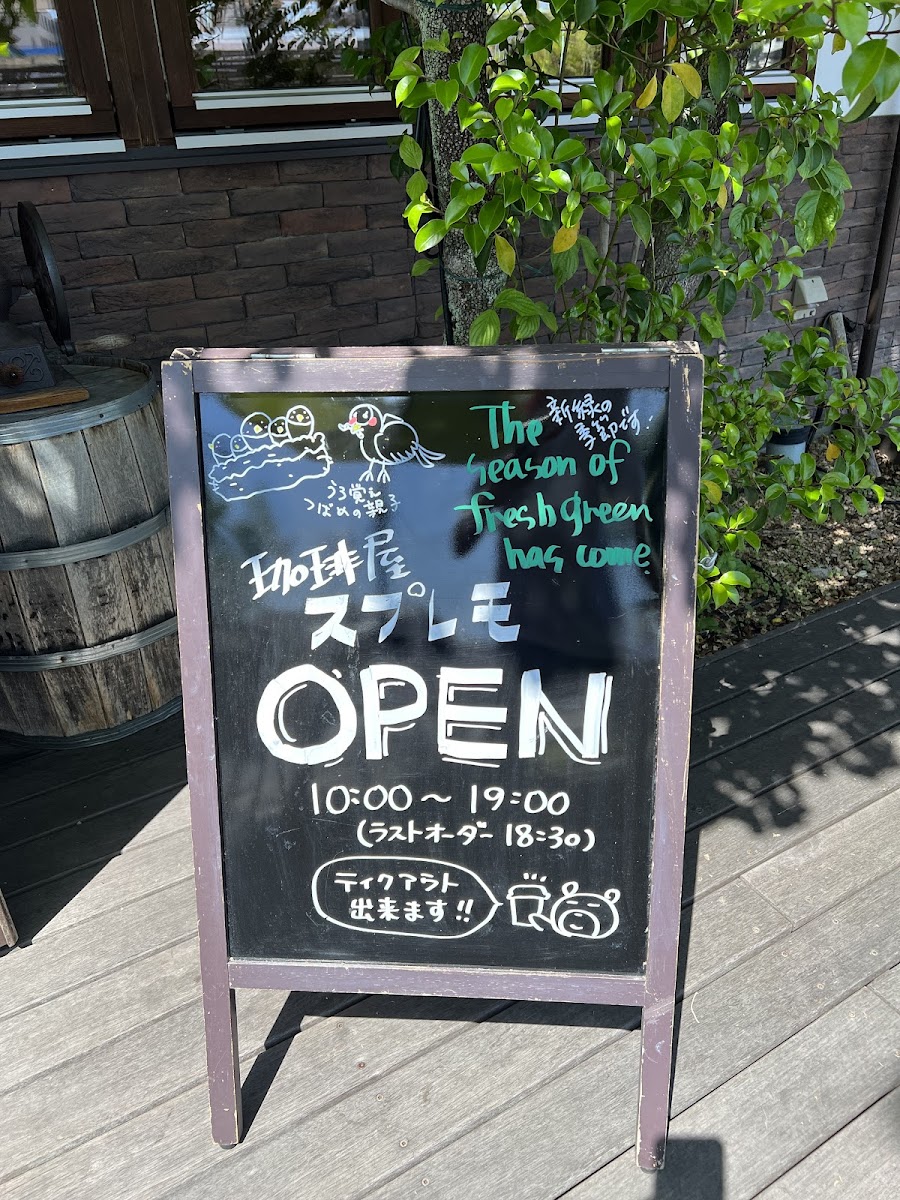 The
season of
fresh green
has come
新緑の
季節です!
うろ覚え
つばめの親子
珈琲屋
スプレモ
OPEN
10:00〜19:00
(ラストオーダー 18:30)
ティクアウト
出来ます!!